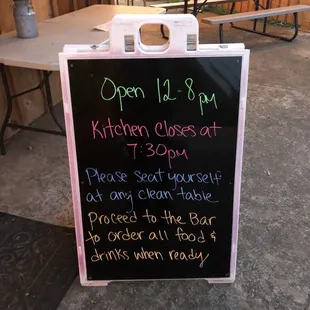 Open 12-8pm
Kitchen Closes at
7:30pm
Please seat yourself
at any clean table
Proceed to the Bar
to order all food &
drinks when ready